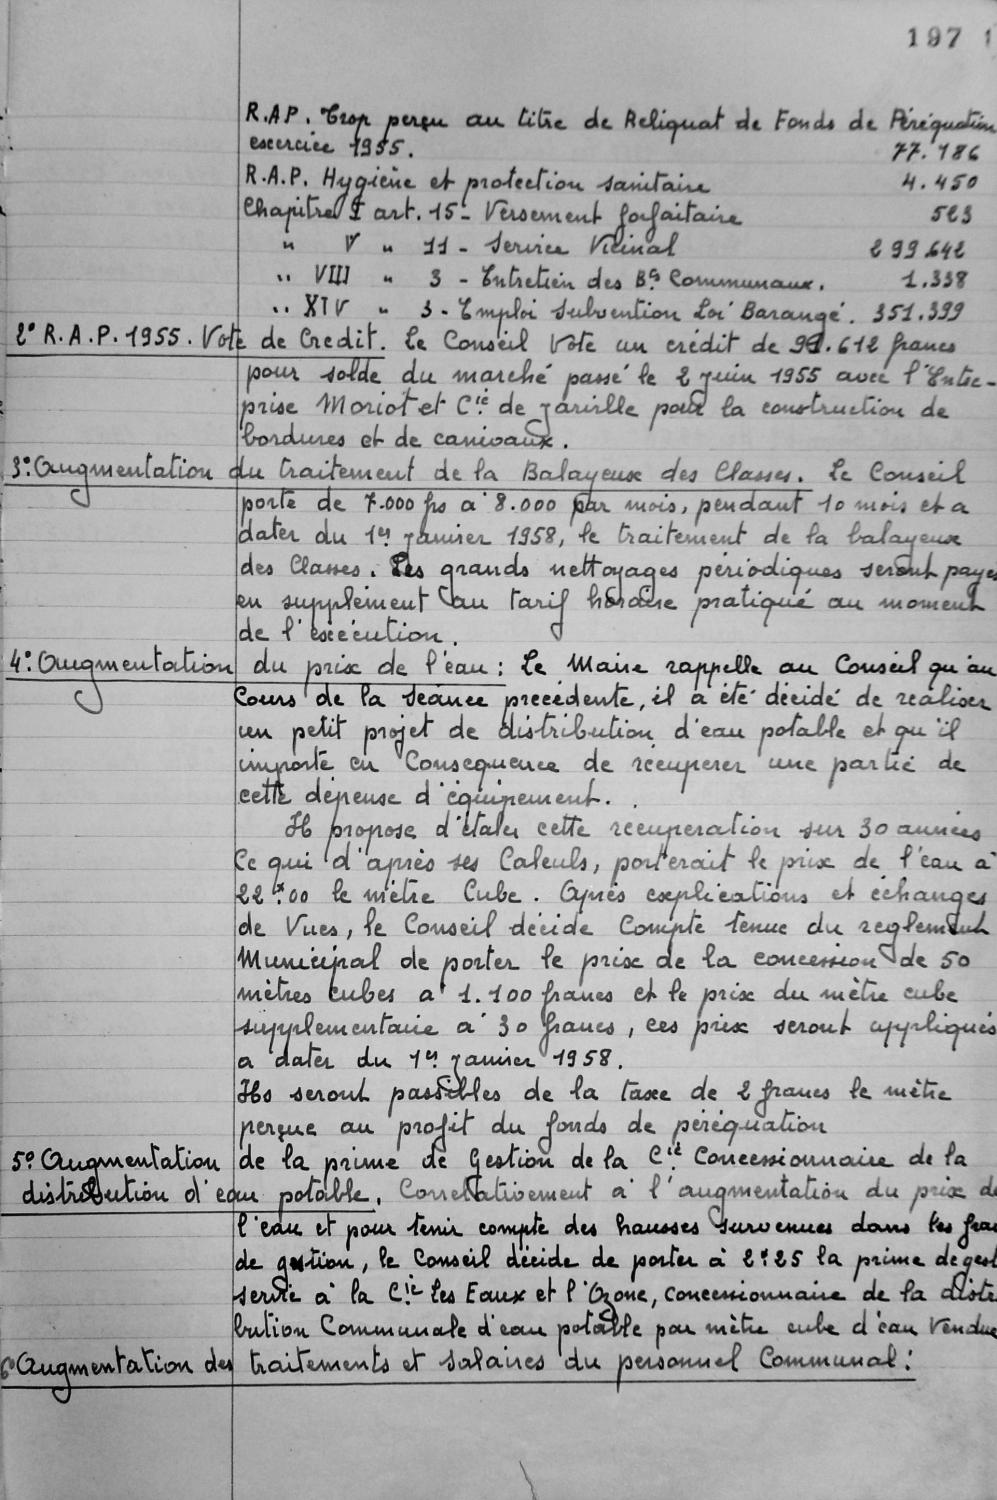 197 1
R.A.P. Trop perçu au titre de Reliquat de Fonds de Péréquation
exercice 1955. 77.186
R.A.P. Hygiène et protection sanitaire 4.450
Chapitre I art. 15 - Versement forfaitaire 523
" V " 11 - Service Vicinal 299.642
" VIII " 3 - Entretien des Bts Communaux. 1.338
" XIV " 3 - Emploi Subvention Loi Barangé. 351.399
2° R.A.P. 1955. Vote de Crédit. Le Conseil Vote un crédit de .612 francs
pour solde du marché passé le 2 Juin 1955 avec l'Entre-
prise Moriot et Cie de Jarville pour la construction de
bordures et de caniveaux.
3° Augmentation du traitement de la Balayeuse des Classes. Le Conseil
porte de 7.000 frs à 8.000 par mois, pendant 10 mois et a
dater du 1er Janvier 1958, le traitement de la balayeuse
des Classes. Les grands nettoyages périodiques seront payés
en supplément au tarif horaire pratiqué au moment
de l'exécution.
4° Augmentation du prix de l'eau : Le Maire rappelle au Conseil qu'au
Cours de la Séance précédente, il a été décidé de réaliser
un petit projet de distribution d'eau potable et qu'il
importe en Conséquence de récupérer une partie de
cette dépense d'équipement.
Il propose d'étaler cette récupération sur 30 années
Ce qui d'après ses Calculs, porterait le prix de l'eau à
22f00 le mètre Cube. Après explications et échanges
de Vues, le Conseil décide Compte tenue du règlement
Municipal de porter le prix de la concession de 50
mètres cubes à 1.100 francs et le prix du mètre cube
supplémentaire à 30 francs, ces prix seront appliqués
a dater du 1er Janvier 1958.
Ils seront passibles de la taxe de 2 francs le mètre
perçue au profit du fonds de péréquation
5° Augmentation de la prime de Gestion de la Cie Concessionnaire de la
distribution d'eau potable. Corrélativement à l'augmentation du prix de
l'eau et pour tenir compte des hausses survenues dans les frai
de gestion, le Conseil décide de porter à 2f25 la prime de gest
servie à la Cie Les Eaux et l'Ozone, concessionnaire de la distri
bution Communale d'eau potable par mètre cube d'eau Vendue
6° Augmentation des traitements et salaires du personnel Communal :